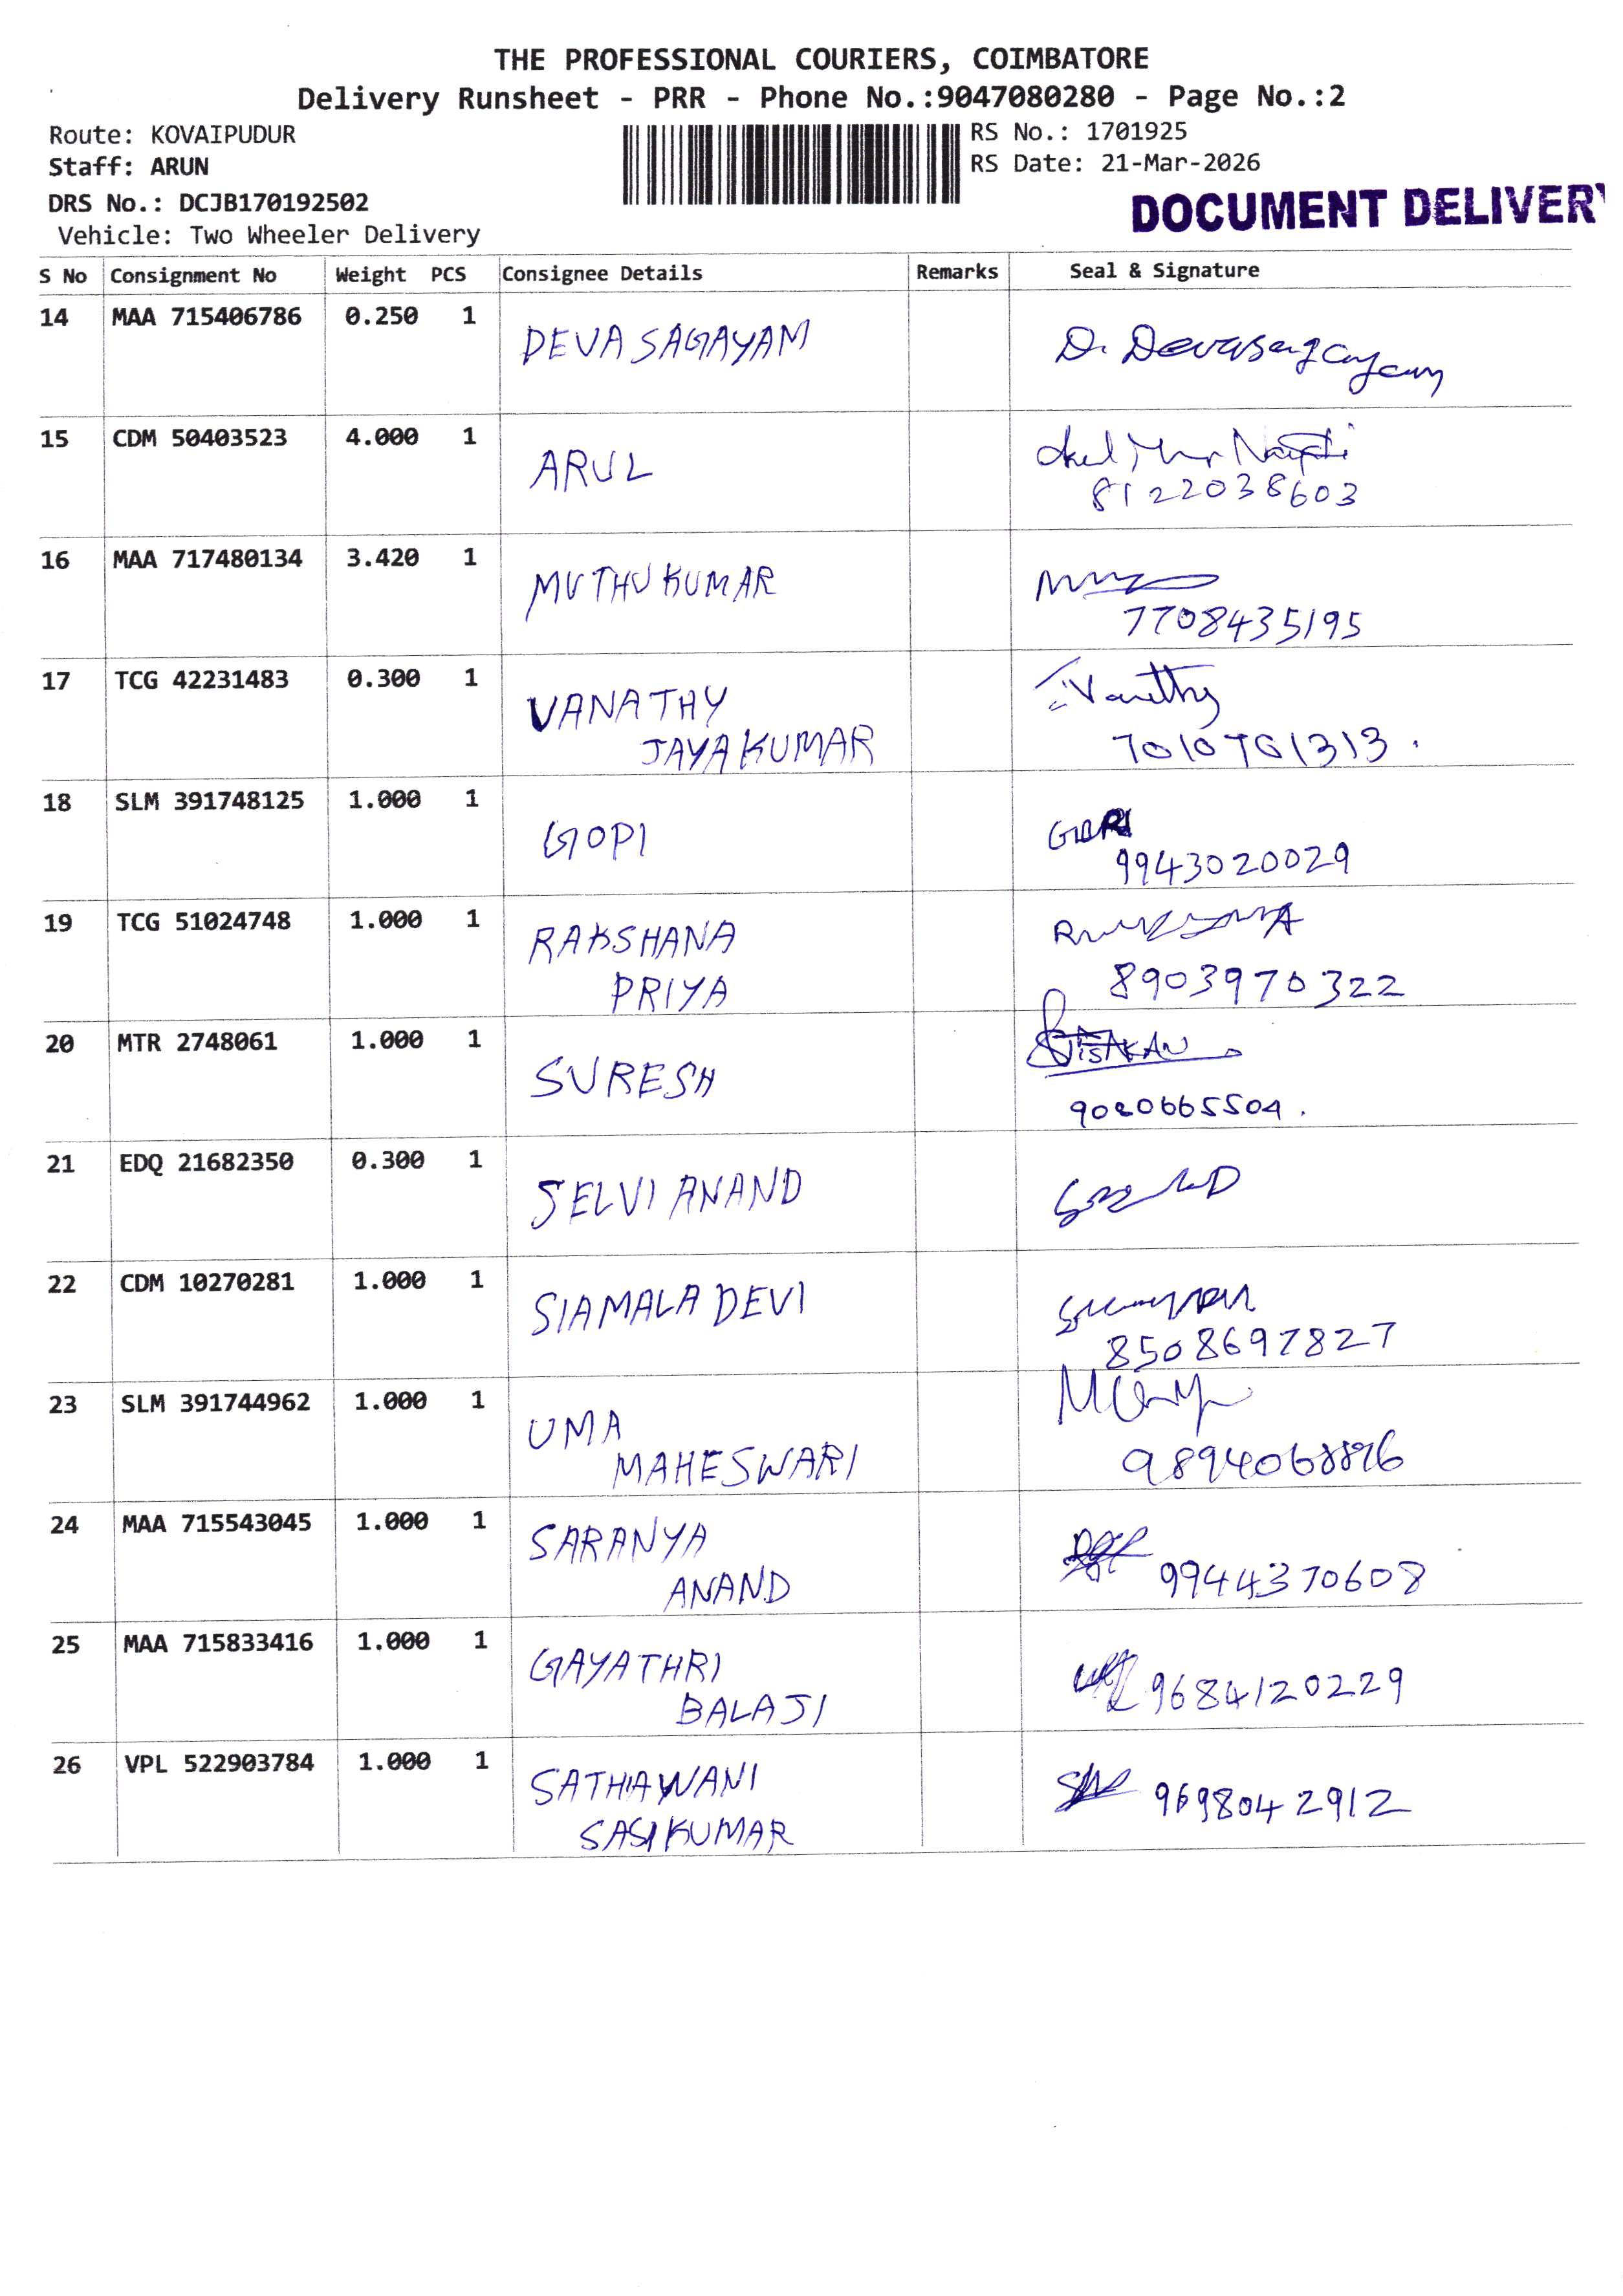 THE PROFESSIONAL COURIERS, COIMBATORE
Delivery Runsheet - PRR - Phone No.:9047080280 - Page No.:2
Route: KOVAIPUDUR
RS No.: 1701925
Staff: ARUN
RS Date: 21-Mar-2026
DRS No.: DCJB170192502
DOCUMENT DELIVERY
Vehicle: Two Wheeler Delivery
S No Consignment No Weight PCS Consignee Details Remarks Seal & Signature
14 MAA 715406786 0.250 1 DEVA SAGAYAM D. Devasagayam
15 CDM 50403523 4.000 1 ARUL
8122038603
16 MAA 717480134 3.420 1 MUTHUKUMAR
7708435195
17 TCG 42231483 0.300 1 VANATHY Vanathy
JAYAKUMAR 7010701313.
18 SLM 391748125 1.000 1 GOPI
9943020029
19 TCG 51024748 1.000 1 RAKSHANA
PRIYA 8903970322
20 MTR 2748061 1.000 1 SURESH
21 EDQ 21682350 0.300 1 SELVI ANAND
22 CDM 10270281 1.000 1 SIAMALA DEVI
8508697827
23 SLM 391744962 1.000 1 UMA
MAHESWARI
24 MAA 715543045 1.000 1 SARANYA
ANAND 9944370608
25 MAA 715833416 1.000 1 GAYATHRI
BALAJI 9684120229
26 VPL 522903784 1.000 1 SATHIAWANI
SASIKUMAR 9698042912